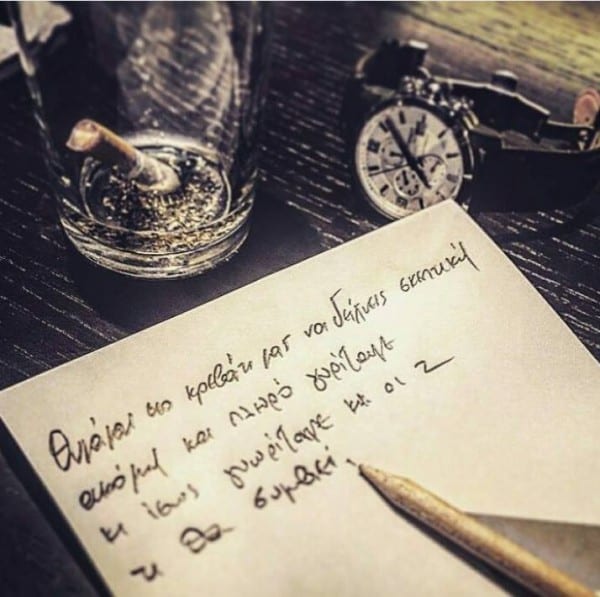 Θυμάμαι στο κρεβάτι μας να δείχνεις σκεπτική
ακόμη και πλευρό γυρίζαμε
κι ίσως γνωρίζαμε κι οι 2
τι θα συμβεί.